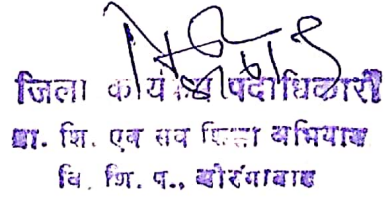 जिला कार्यक्रम पदाधिकारी
प्रा. शि. एवं सर्व शिक्षा अभियान
बि. शि. प., औरंगाबाद